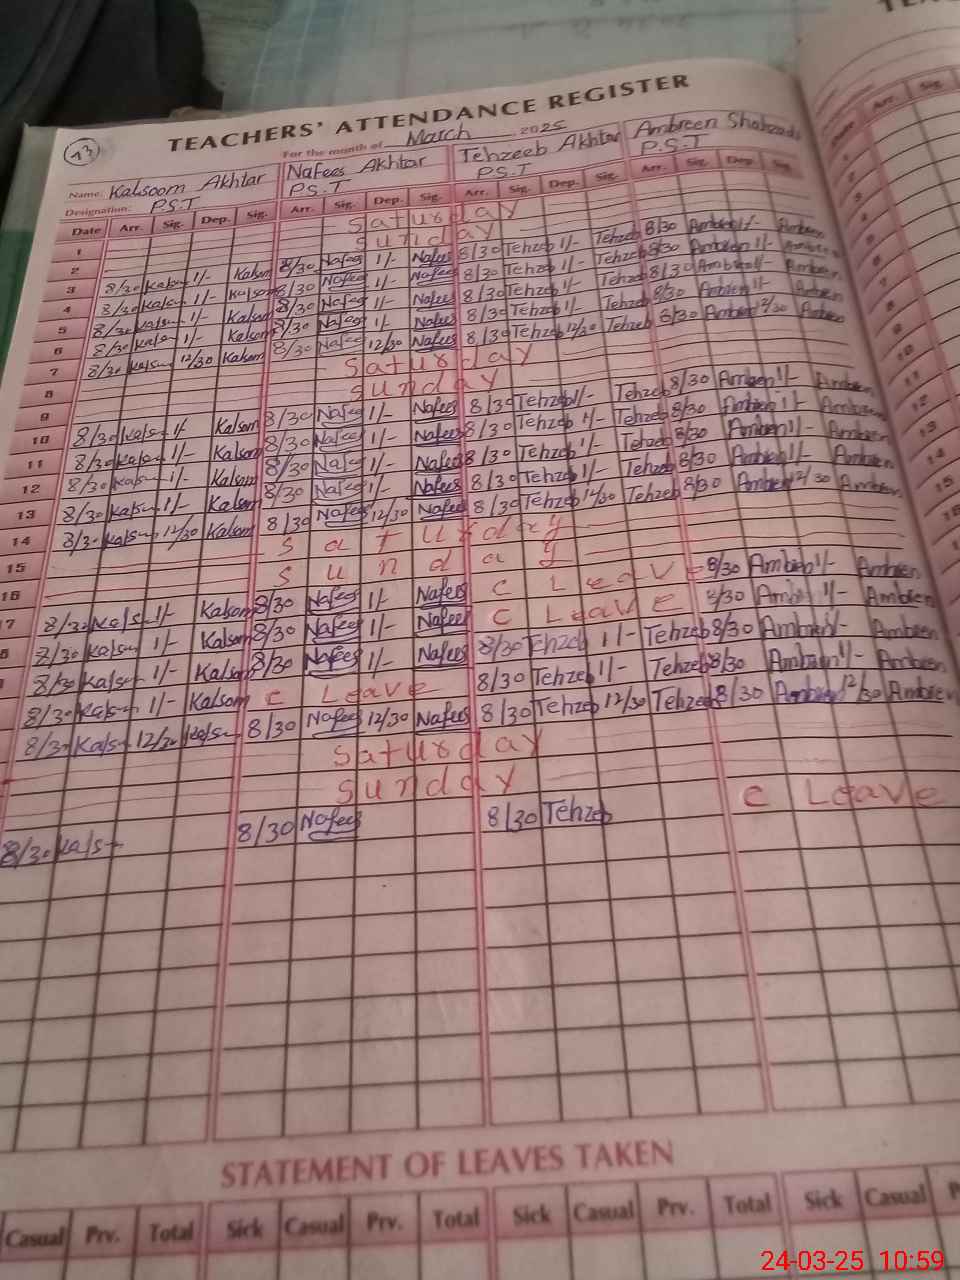 TEACHERS' ATTENDANCE REGISTER
13
For the month of March 2025
Name: Kalsoom Akhtar Nafees Akhtar Tehzeeb Akhtar Ambreen Shahzadi
Designation: P.S.T P.S.T P.S.T P.S.T
Date Arr. Sig. Dep. Sig. Arr. Sig. Dep. Sig. Arr. Sig. Dep. Sig. Arr. Sig. Dep. Sig.
1 Saturday
2 Sunday
3 8/30 Kalsm 1/- Kalsom 8/30 Nafees 1/- Nafees 8/30 Tehzeb 1/- Tehzeb 8/30 Ambien 1/- Ambien
4 8/30 Kalsm 1/- Kalsom 8/30 Nafees 1/- Nafees 8/30 Tehzeb 1/- Tehzeb 8/30 Ambien 1/- Ambien
5 8/30 Kalsm 1/- Kalsom 8/30 Nafees 1/- Nafees 8/30 Tehzeb 1/- Tehzeb 8/30 Ambien 1/- Ambien
6 8/30 Kalsm 1/- Kalsom 8/30 Nafees 1/- Nafees 8/30 Tehzeb 1/- Tehzeb 8/30 Ambien 1/- Ambien
7 8/30 Kalsm 12/30 Kalsom 8/30 Nafees 12/30 Nafees 8/30 Tehzeb 12/30 Tehzeb 8/30 Ambien 12/30 Ambien
8 Saturday
9 Sunday
10 8/30 Kalsm 1/- Kalsom 8/30 Nafees 1/- Nafees 8/30 Tehzeb 1/- Tehzeb 8/30 Ambien 1/- Ambien
11 8/30 Kalsm 1/- Kalsom 8/30 Nafees 1/- Nafees 8/30 Tehzeb 1/- Tehzeb 8/30 Ambien 1/- Ambien
12 8/30 Kalsm 1/- Kalsom 8/30 Nafees 1/- Nafees 8/30 Tehzeb 1/- Tehzeb 8/30 Ambien 1/- Ambien
13 8/30 Kalsm 1/- Kalsom 8/30 Nafees 1/- Nafees 8/30 Tehzeb 1/- Tehzeb 8/30 Ambien 1/- Ambien
14 8/30 Kalsm 12/30 Kalsom 8/30 Nafees 12/30 Nafees 8/30 Tehzeb 12/30 Tehzeb 8/30 Ambien 12/30 Ambien
15 Saturday
16 Sunday
7 8/30 Kalsm 1/- Kalsom 8/30 Nafees 1/- Nafees C Leave 8/30 Ambien 1/- Ambien
8/30 Kalsm 1/- Kalsom 8/30 Nafees 1/- Nafees C Leave 8/30 Ambien 1/- Ambien
8/30 Kalsm 1/- Kalsom 8/30 Nafees 1/- Nafees 8/30 Tehzeb 1/- Tehzeb 8/30 Ambien 1/- Ambien
8/30 Kalsm 1/- Kalsom C Leave 8/30 Tehzeb 1/- Tehzeb 8/30 Ambien 1/- Ambien
8/30 Kalsm 12/30 Kalsm 8/30 Nafees 12/30 Nafees 8/30 Tehzeb 12/30 Tehzeb 8/30 Ambien 12/30 Ambien
Saturday
Sunday
8/30 Kalsm 8/30 Nafees 8/30 Tehzeb C Leave
STATEMENT OF LEAVES TAKEN
Casual Prv. Total Sick Casual Prv. Total Sick Casual Prv. Total Sick Casual P
24-03-25 10:59